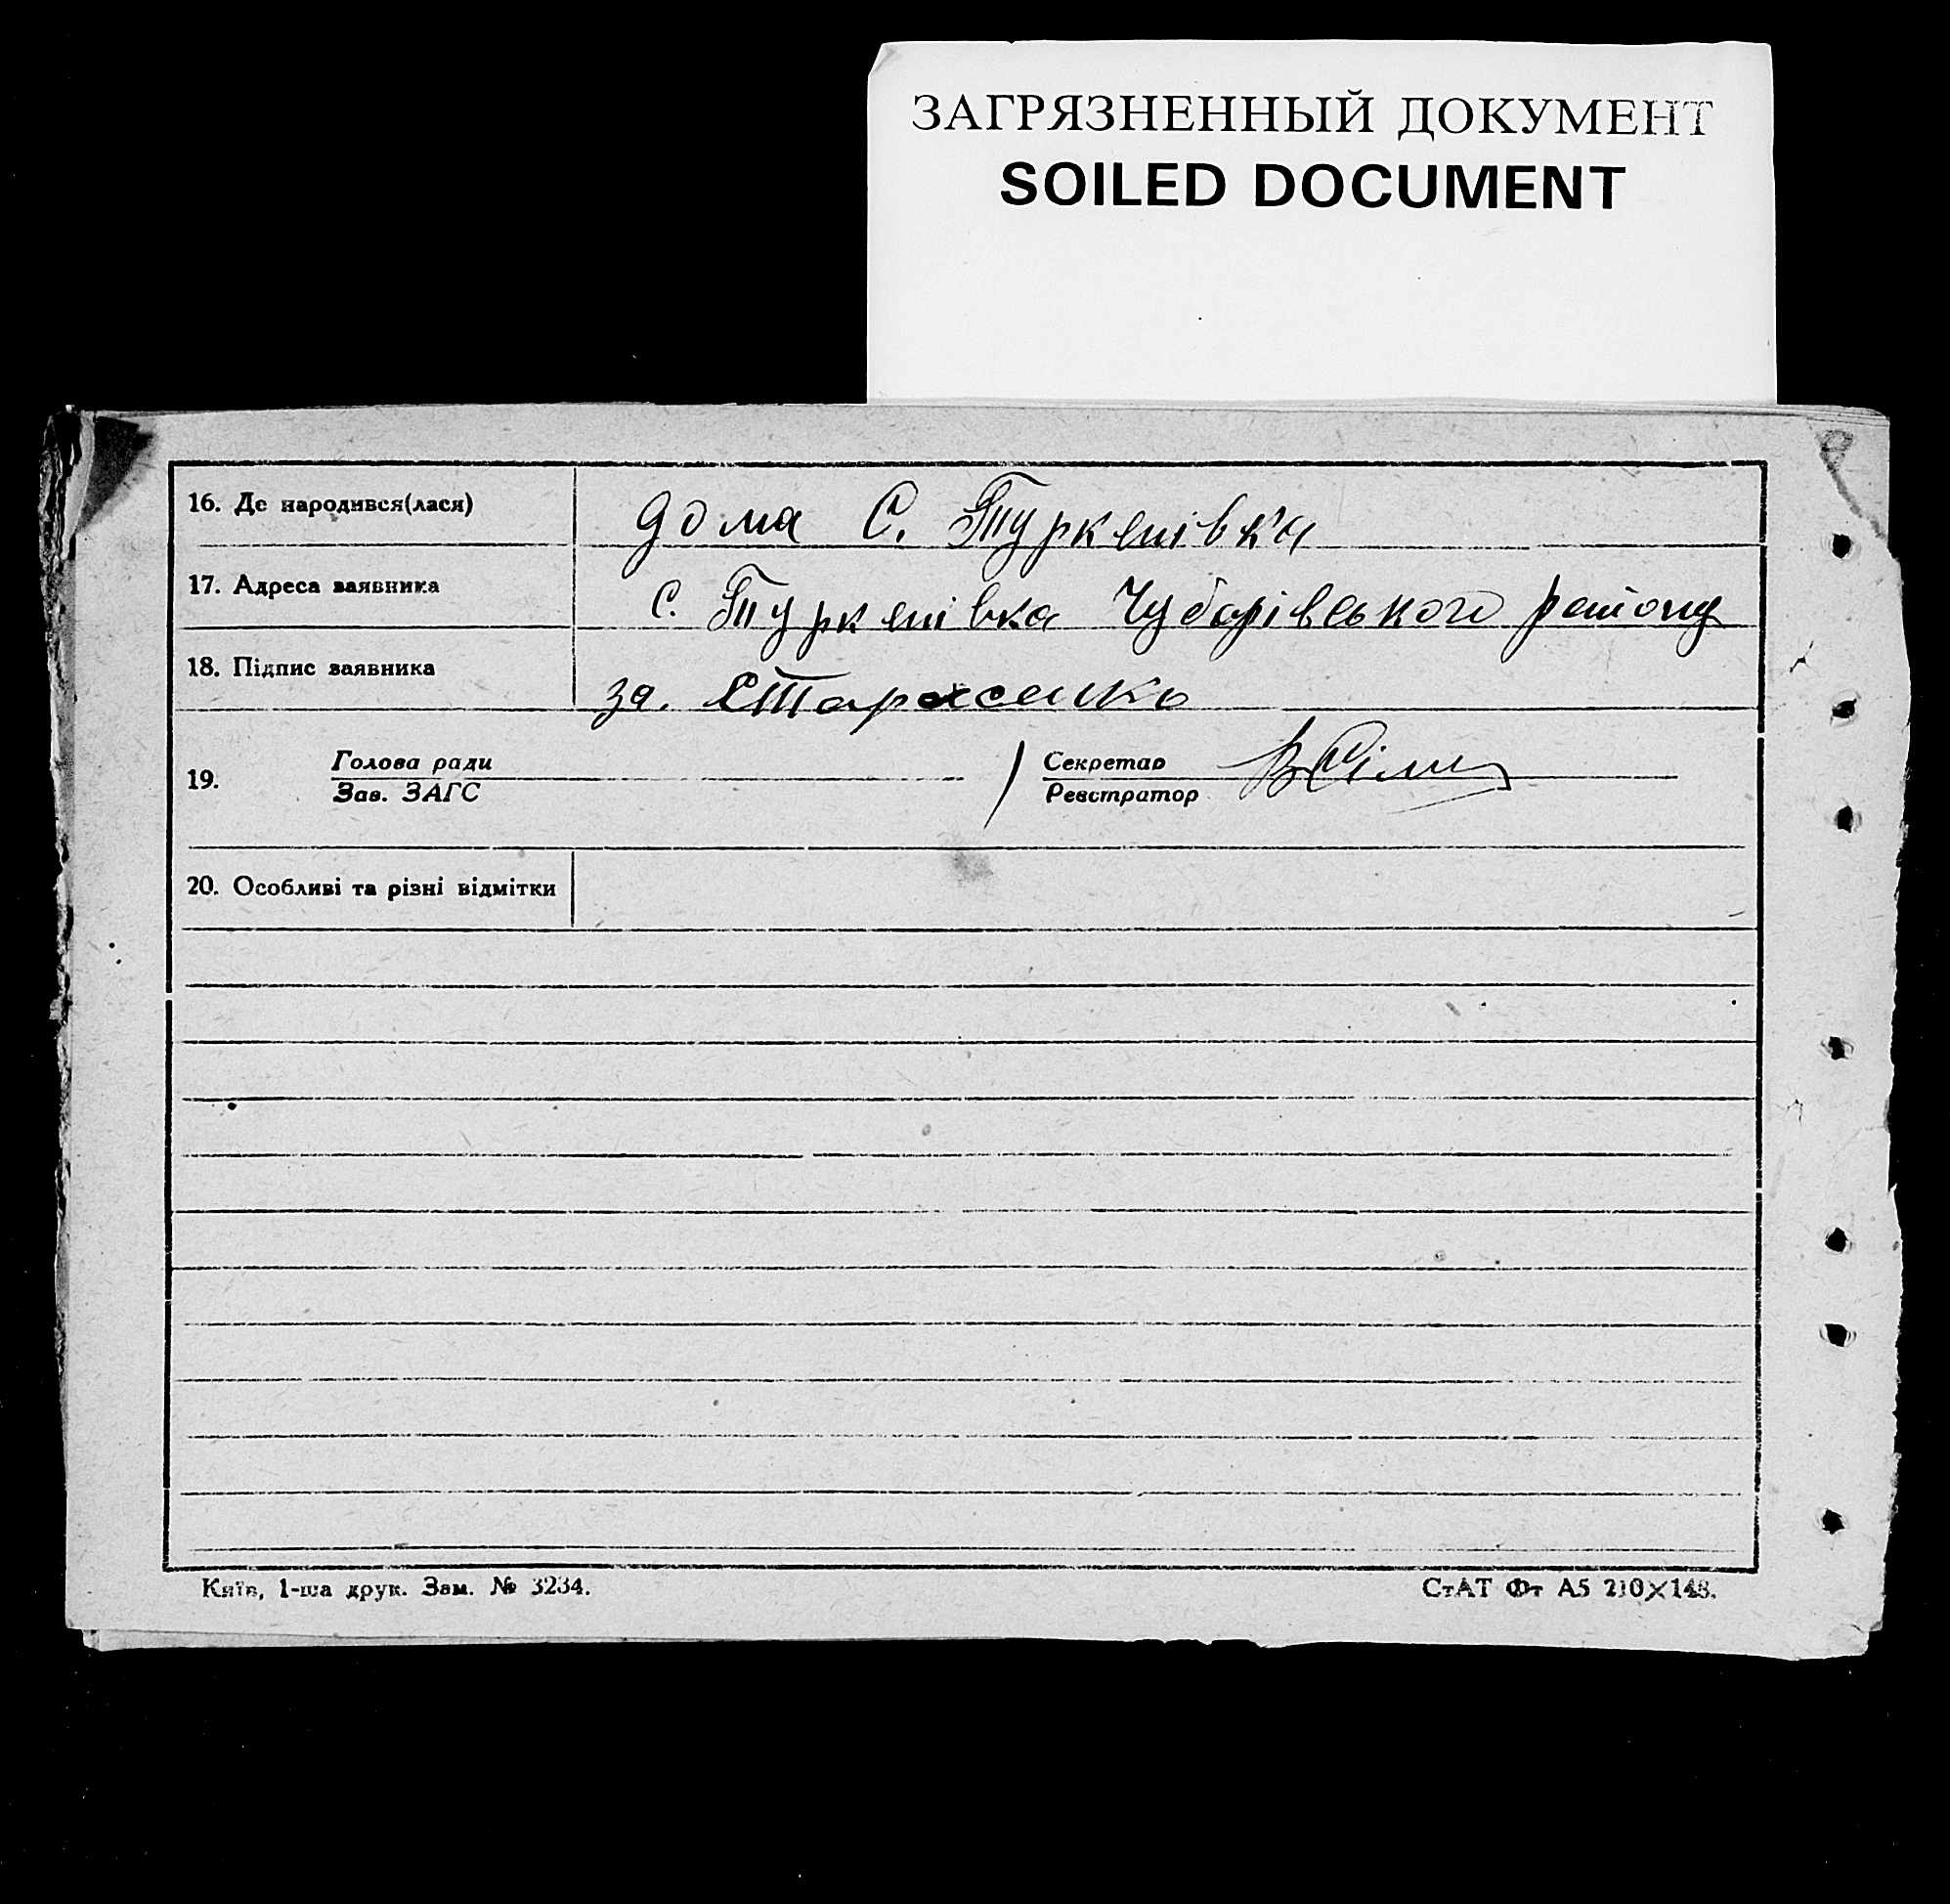 ЗАГРЯЗНЕННЫЙ ДОКУМЕНТ
SOILED DOCUMENT
16. Де народився(лася) дома С. Туркенівка
17. Адреса заявника с. Туркенівка Чубарівського району
18. Підпис заявника за. Тарасенко
19. Голова ради Секретар
Зав. ЗАГС Реєстратор
20. Особливі та різні відмітки
Київ, 1-ша друк. Зам. № 3234. СтАТ Фт А5 210×148.